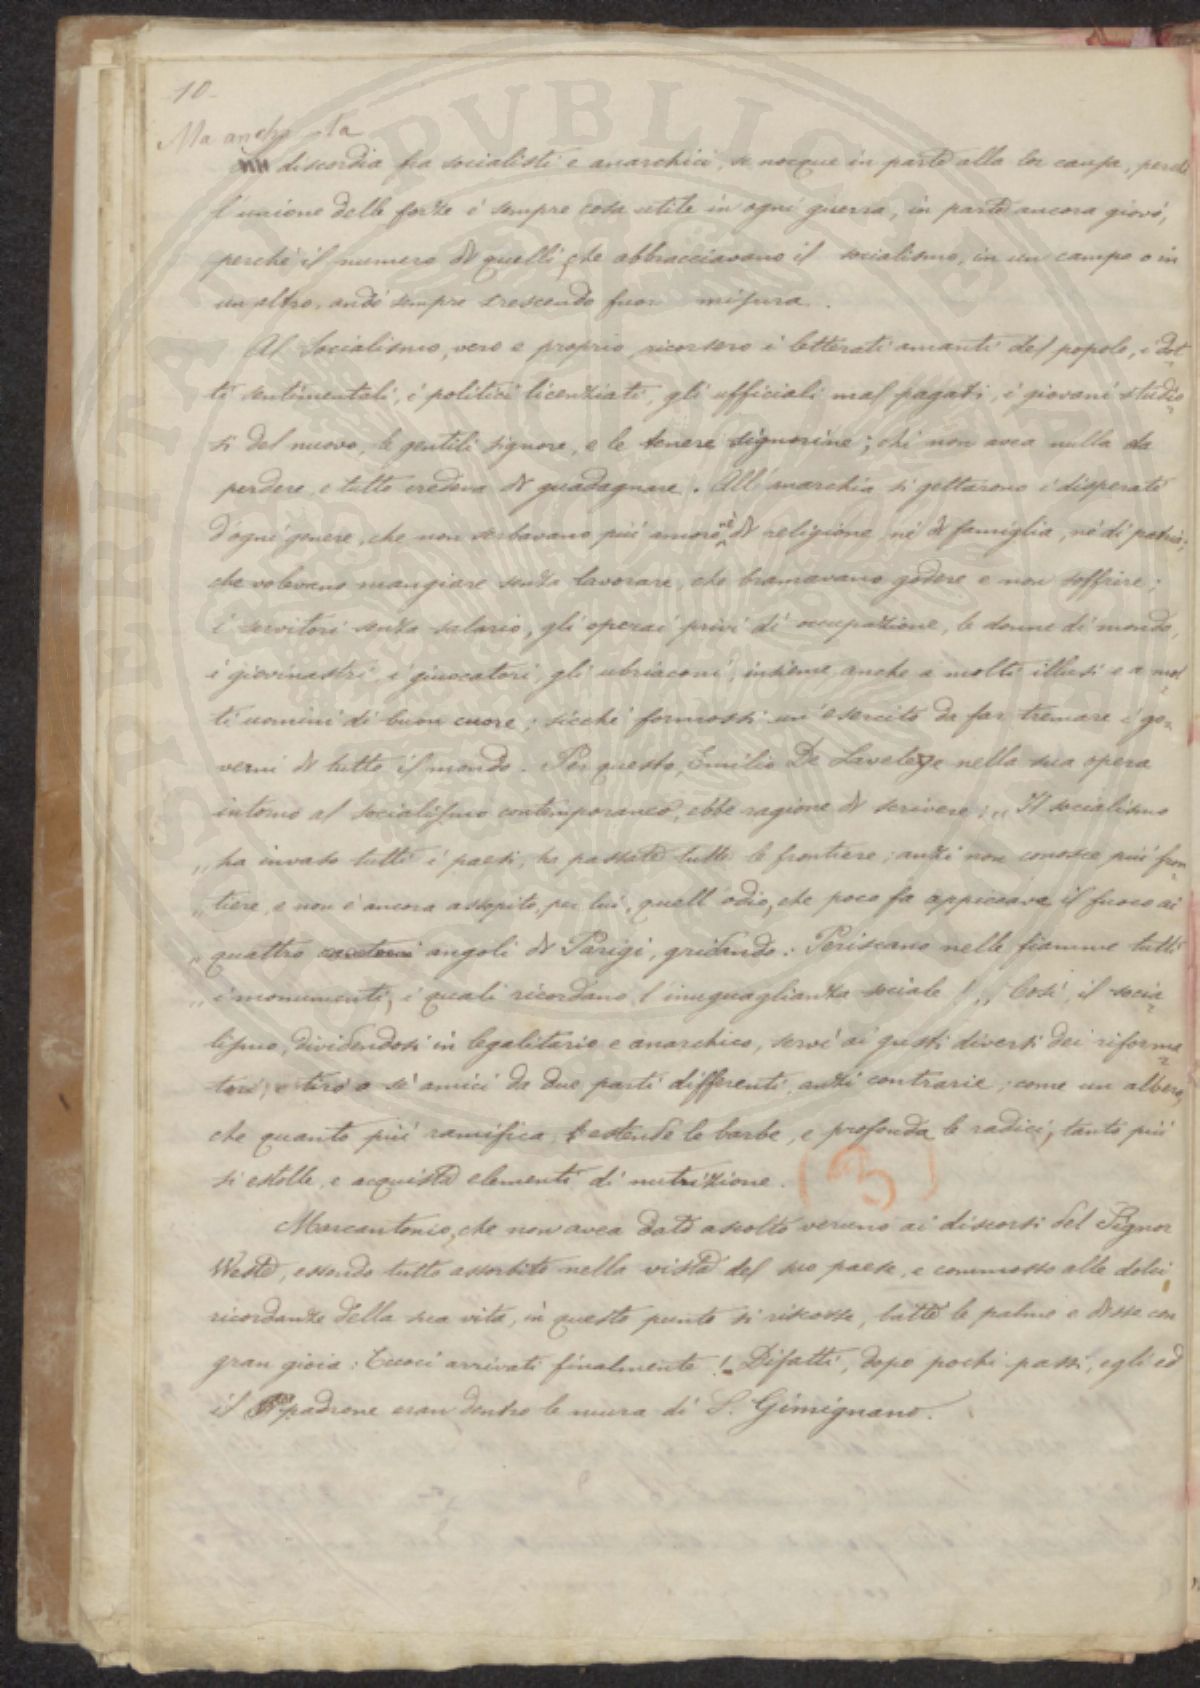 10-
Ma anche sta
discordia fra socialisti e anarchici, se nocque in parte alla lor causa, perchè
l'unione delle forze è sempre cosa utile in ogni guerra, in parte ancora giovò,
perchè il numero di quelli, che abbracciavano il socialismo, in un campo o in
un altro, andò sempre crescendo fuor misura.
Al Socialismo, vero e proprio ricorsero i letterati amanti del popolo, i dot-
ti sentimentali, i politici licenziati, gli ufficiali mal pagati, i giovani studio-
si del nuovo, le gentili signore, e le tenere signorine; chi non avea nulla da
perdere, e tutto credeva di guadagnare. All'anarchia si gettarono i disperati
d'ogni genere, che non serbavano più amore nè di religione, nè di famiglia, nè di patria;
che volevano mangiare senza lavorare, che bramavano godere e non soffrire;
i servitori senza salario, gli operai privi di occupazione, le donne di mondo,
i giovinastri, i giuocatori, gli ubriaconi, insieme anche a molti illusi e a mol-
ti uomini di buon cuore; sicchè formossi un'esercito da far tremare i go-
verni di tutto il mondo. Per questo, Emilio De Laveleye nella sua opera
intorno al socialismo contemporaneo, ebbe ragione di scrivere: „Il socialismo
„ha invaso tutti i paesi, ha passate tutte le frontiere; anzi non conosce più fron-
„tiere, e non è ancora assopito, per lui, quell'odio, che poco fa appiccava il fuoco ai
„quattro angoli di Parigi, gridando: Periscano nelle fiamme tutti
„i monumenti, i quali ricordano l'inuguaglianza sociale!„ Così, il socia-
lismo, dividendosi in legalitario e anarchico, servì ai gusti diversi dei riforma-
tori; e tirò a sè amici da due parti differenti, anzi contrarie; come un albero,
che quanto più ramifica, estende le barbe, e profonda le radici, tanto più
si estolle, e acquista elementi di nutrizione.
Marcantonio, che non avea dato ascolto veruno ai discorsi del Signor
West, essendo tutto assorbito nella vista del suo paese, e commosso alle dolci
ricordanze della sua vita, in questo punto si riscosse, battè le palme e disse con
gran gioia: Eccoci arrivati finalmente!- Difatti, dopo pochi passi, egli ed
il padrone eran dentro le mura di S. Gimignano.